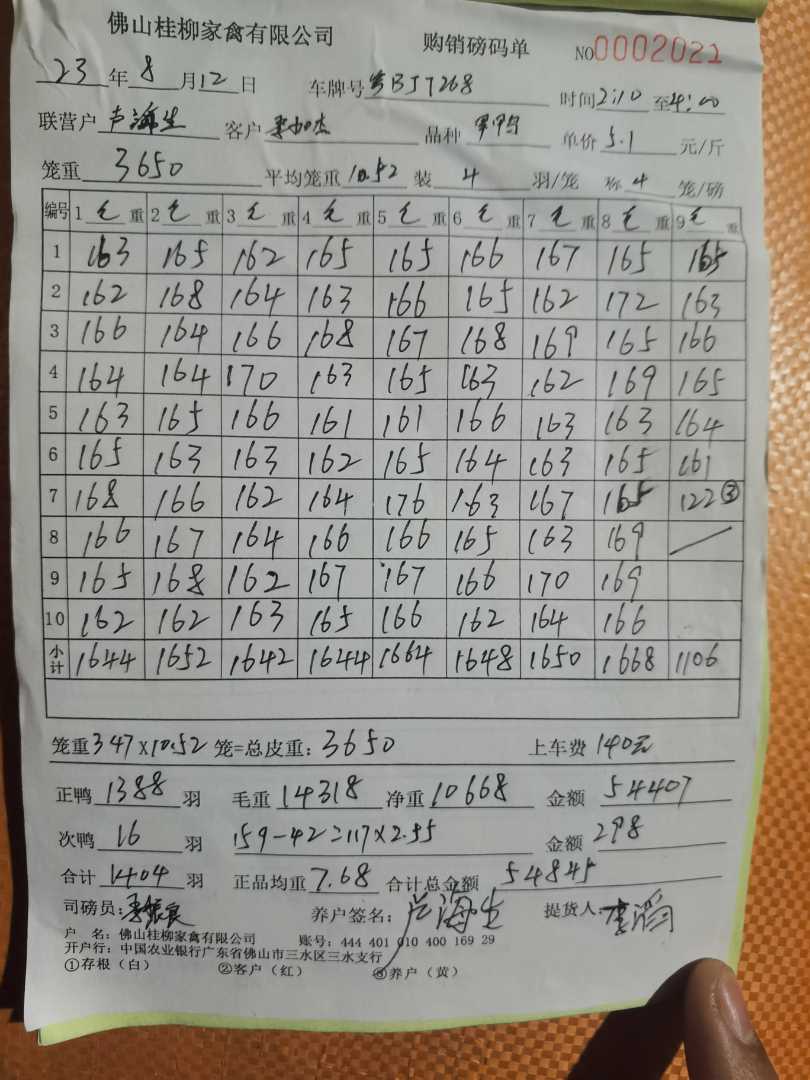 佛山桂柳家禽有限公司 购销磅码单 NO0002021
23年8月12日 车牌号粤BJ7268 时间2:10至4:00
联营户卢海生 客户 品种 单价5.1元/斤
笼重3650 平均笼重10.52装4羽/笼 称4笼/磅
编号 1毛重 2毛重 3毛重 4毛重 5毛重 6毛重 7毛重 8毛重 9毛重
1 163 165 162 165 165 166 167 165 165
2 162 168 164 163 166 165 162 172 163
3 166 164 166 168 167 168 169 165 166
4 164 164 170 163 165 163 162 169 165
5 163 165 166 161 161 166 163 163 164
6 165 163 163 162 165 164 163 165 161
7 168 166 162 164 176 163 167 165 122③
8 166 167 164 166 166 165 163 169
9 165 168 162 167 167 166 170 169
10 162 162 163 165 166 162 164 166
小计 1644 1652 1642 1644 1664 1648 1650 1668 1106
笼重347×10.52笼=总皮重:3650 上车费140元
正鸭1388羽 毛重14318净重10668 金额54407
次鸭16羽 159-42=117×2.55 金额298
合计1404羽 正品均重7.68 合计总金额54845
司磅员: 养户签名:卢海生 提货人:
户 名:佛山桂柳家禽有限公司 账号:444 401 010 400 169 29
开户行:中国农业银行广东省佛山市三水区三水支行
①存根(白) ②客户(红) ③养户(黄)